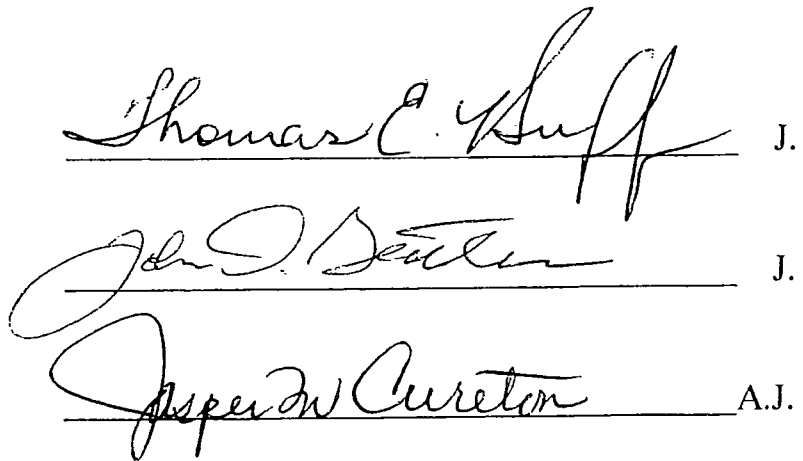 Thomas E. Huff J.
John D. Geathers J.
Jasper M Cureton A.J.